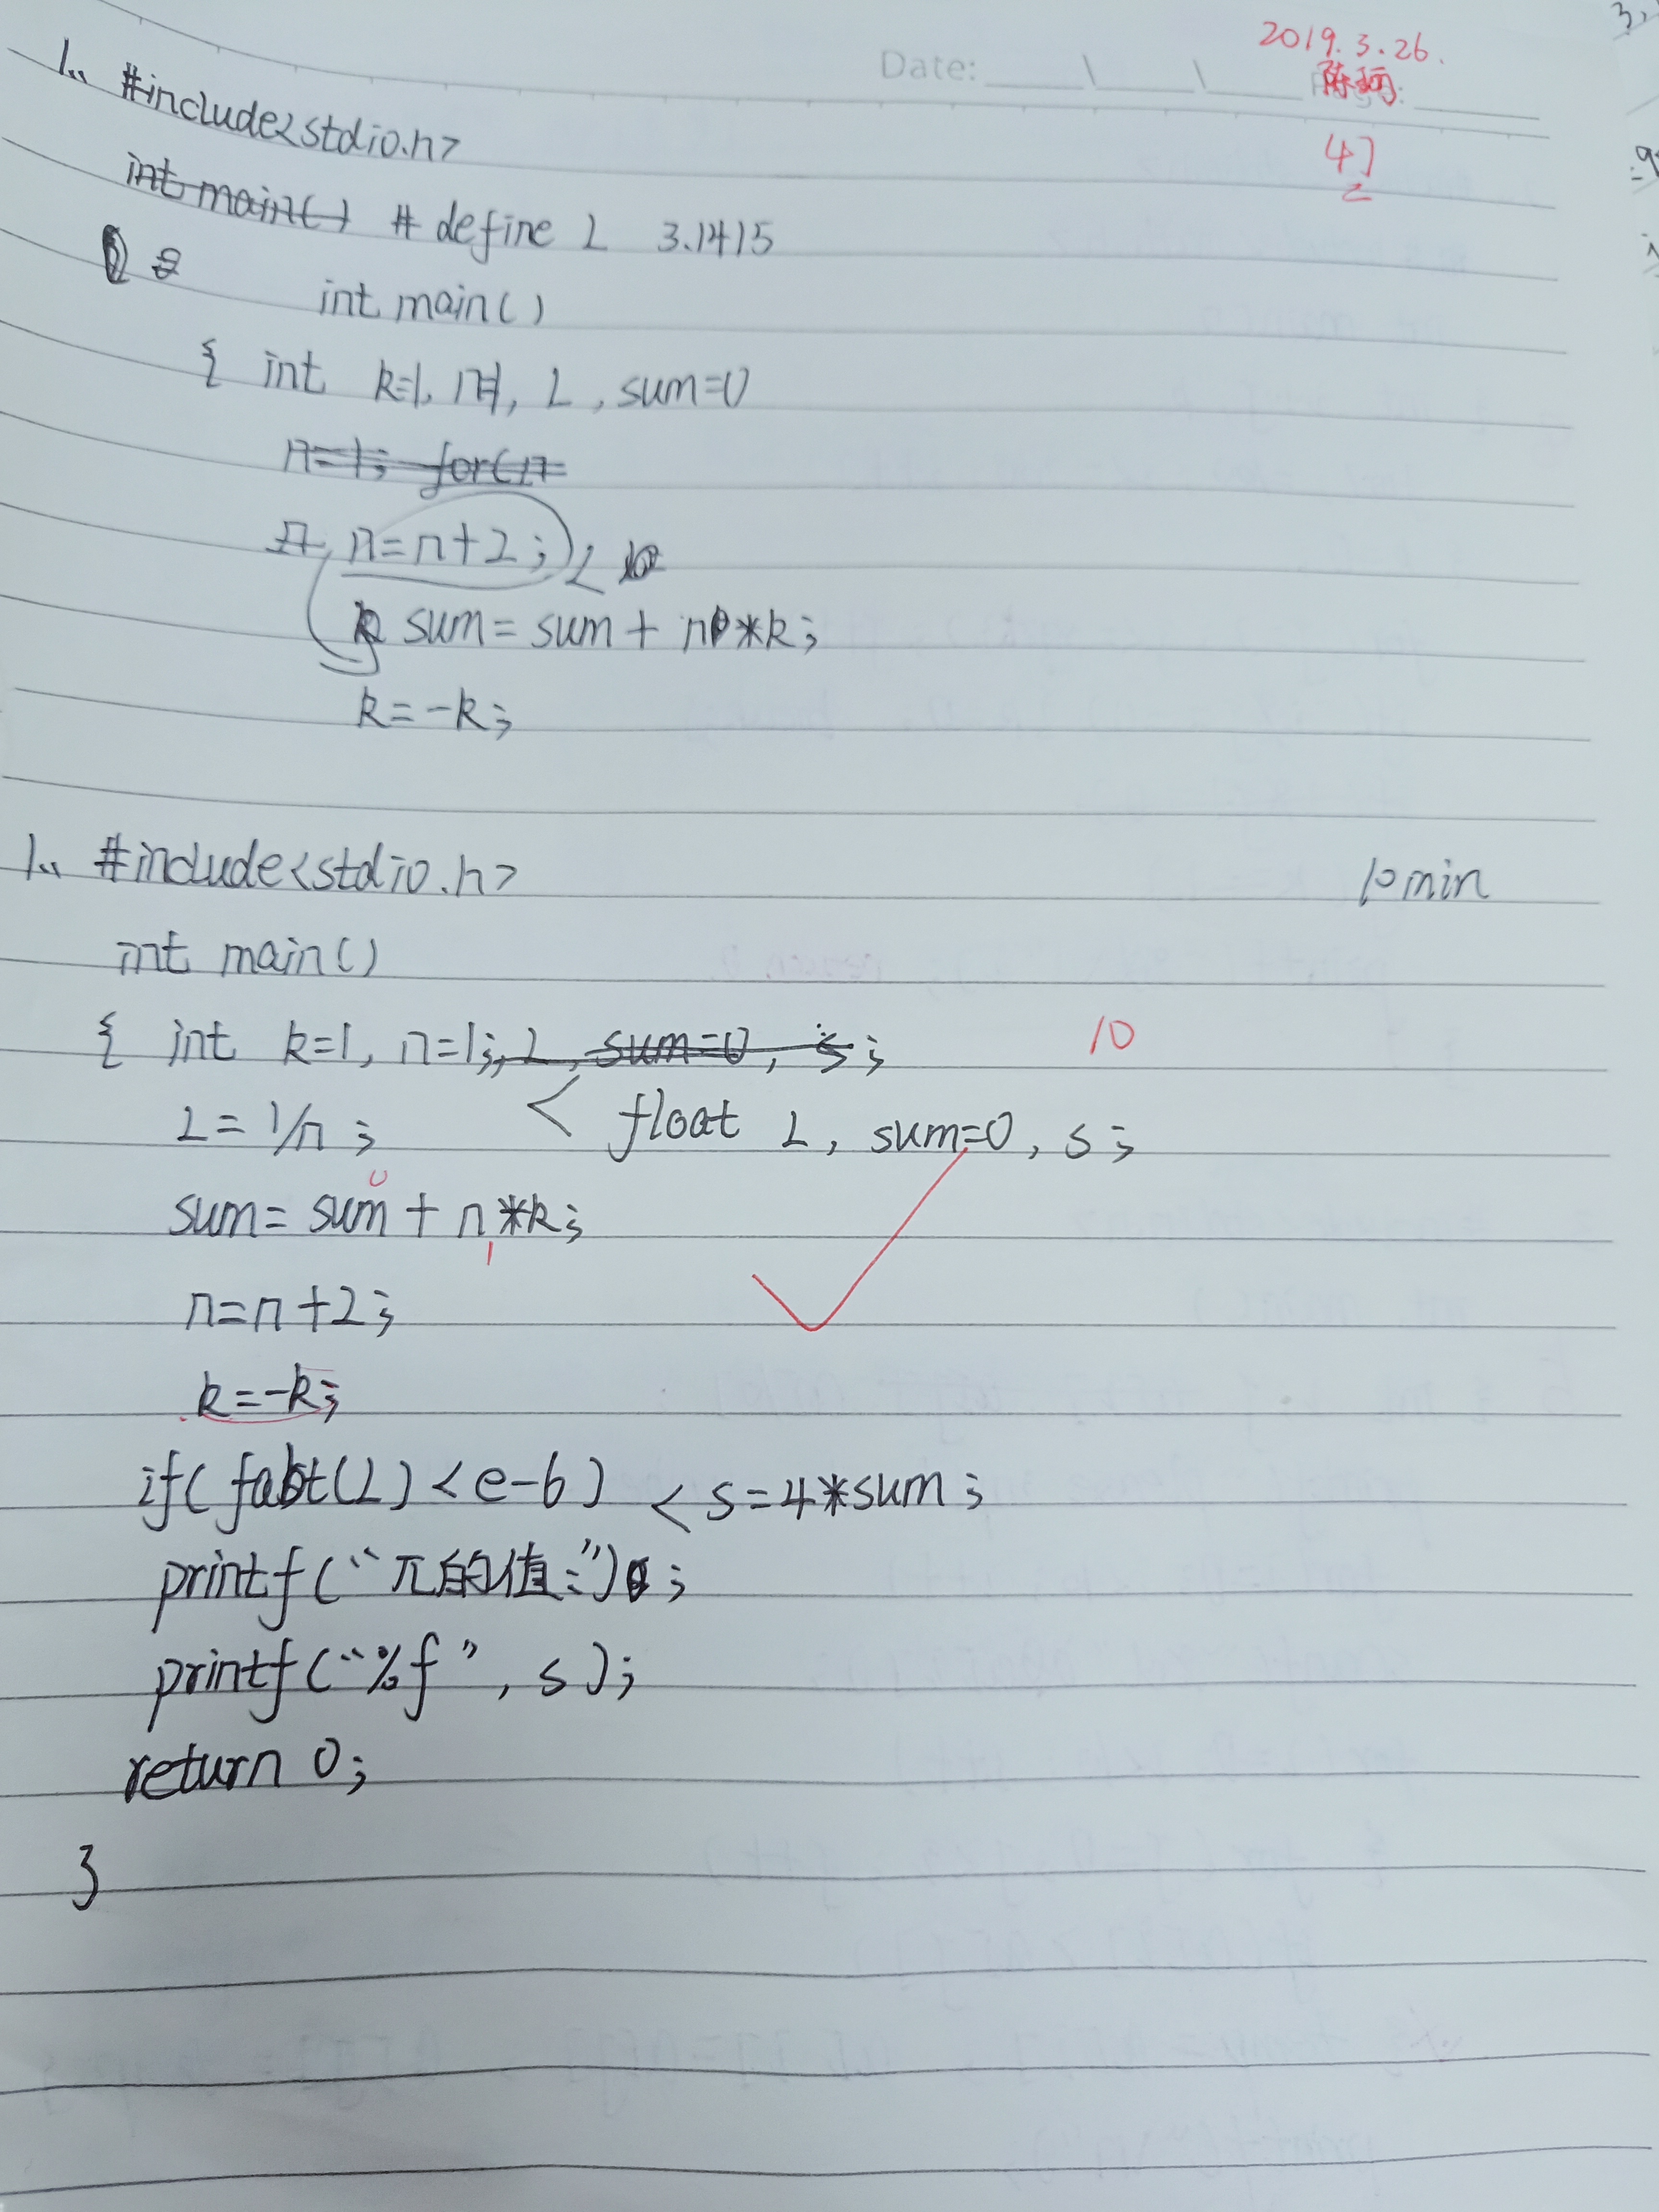 2019.3.26.
Date:
47
1. #include<stdio.h>
int main() # define L 3.1415
int main()
{ int k=1, n=1, L, sum=0
n=1; for(n=
n=n+2;
sum=sum+n*k;
k=-k;
1. #include<stdio.h> 10min
int main()
{ int k=1, n=1;, L, sum=0, s; 10
L=1/n; < float L, sum=0, s;
0
sum=sum+n*k;
1
n=n+2;
k=-k;
if(fabt(L)<e-6) < s=4*sum;
printf("π的值:");
printf("%f", s);
return 0;
}